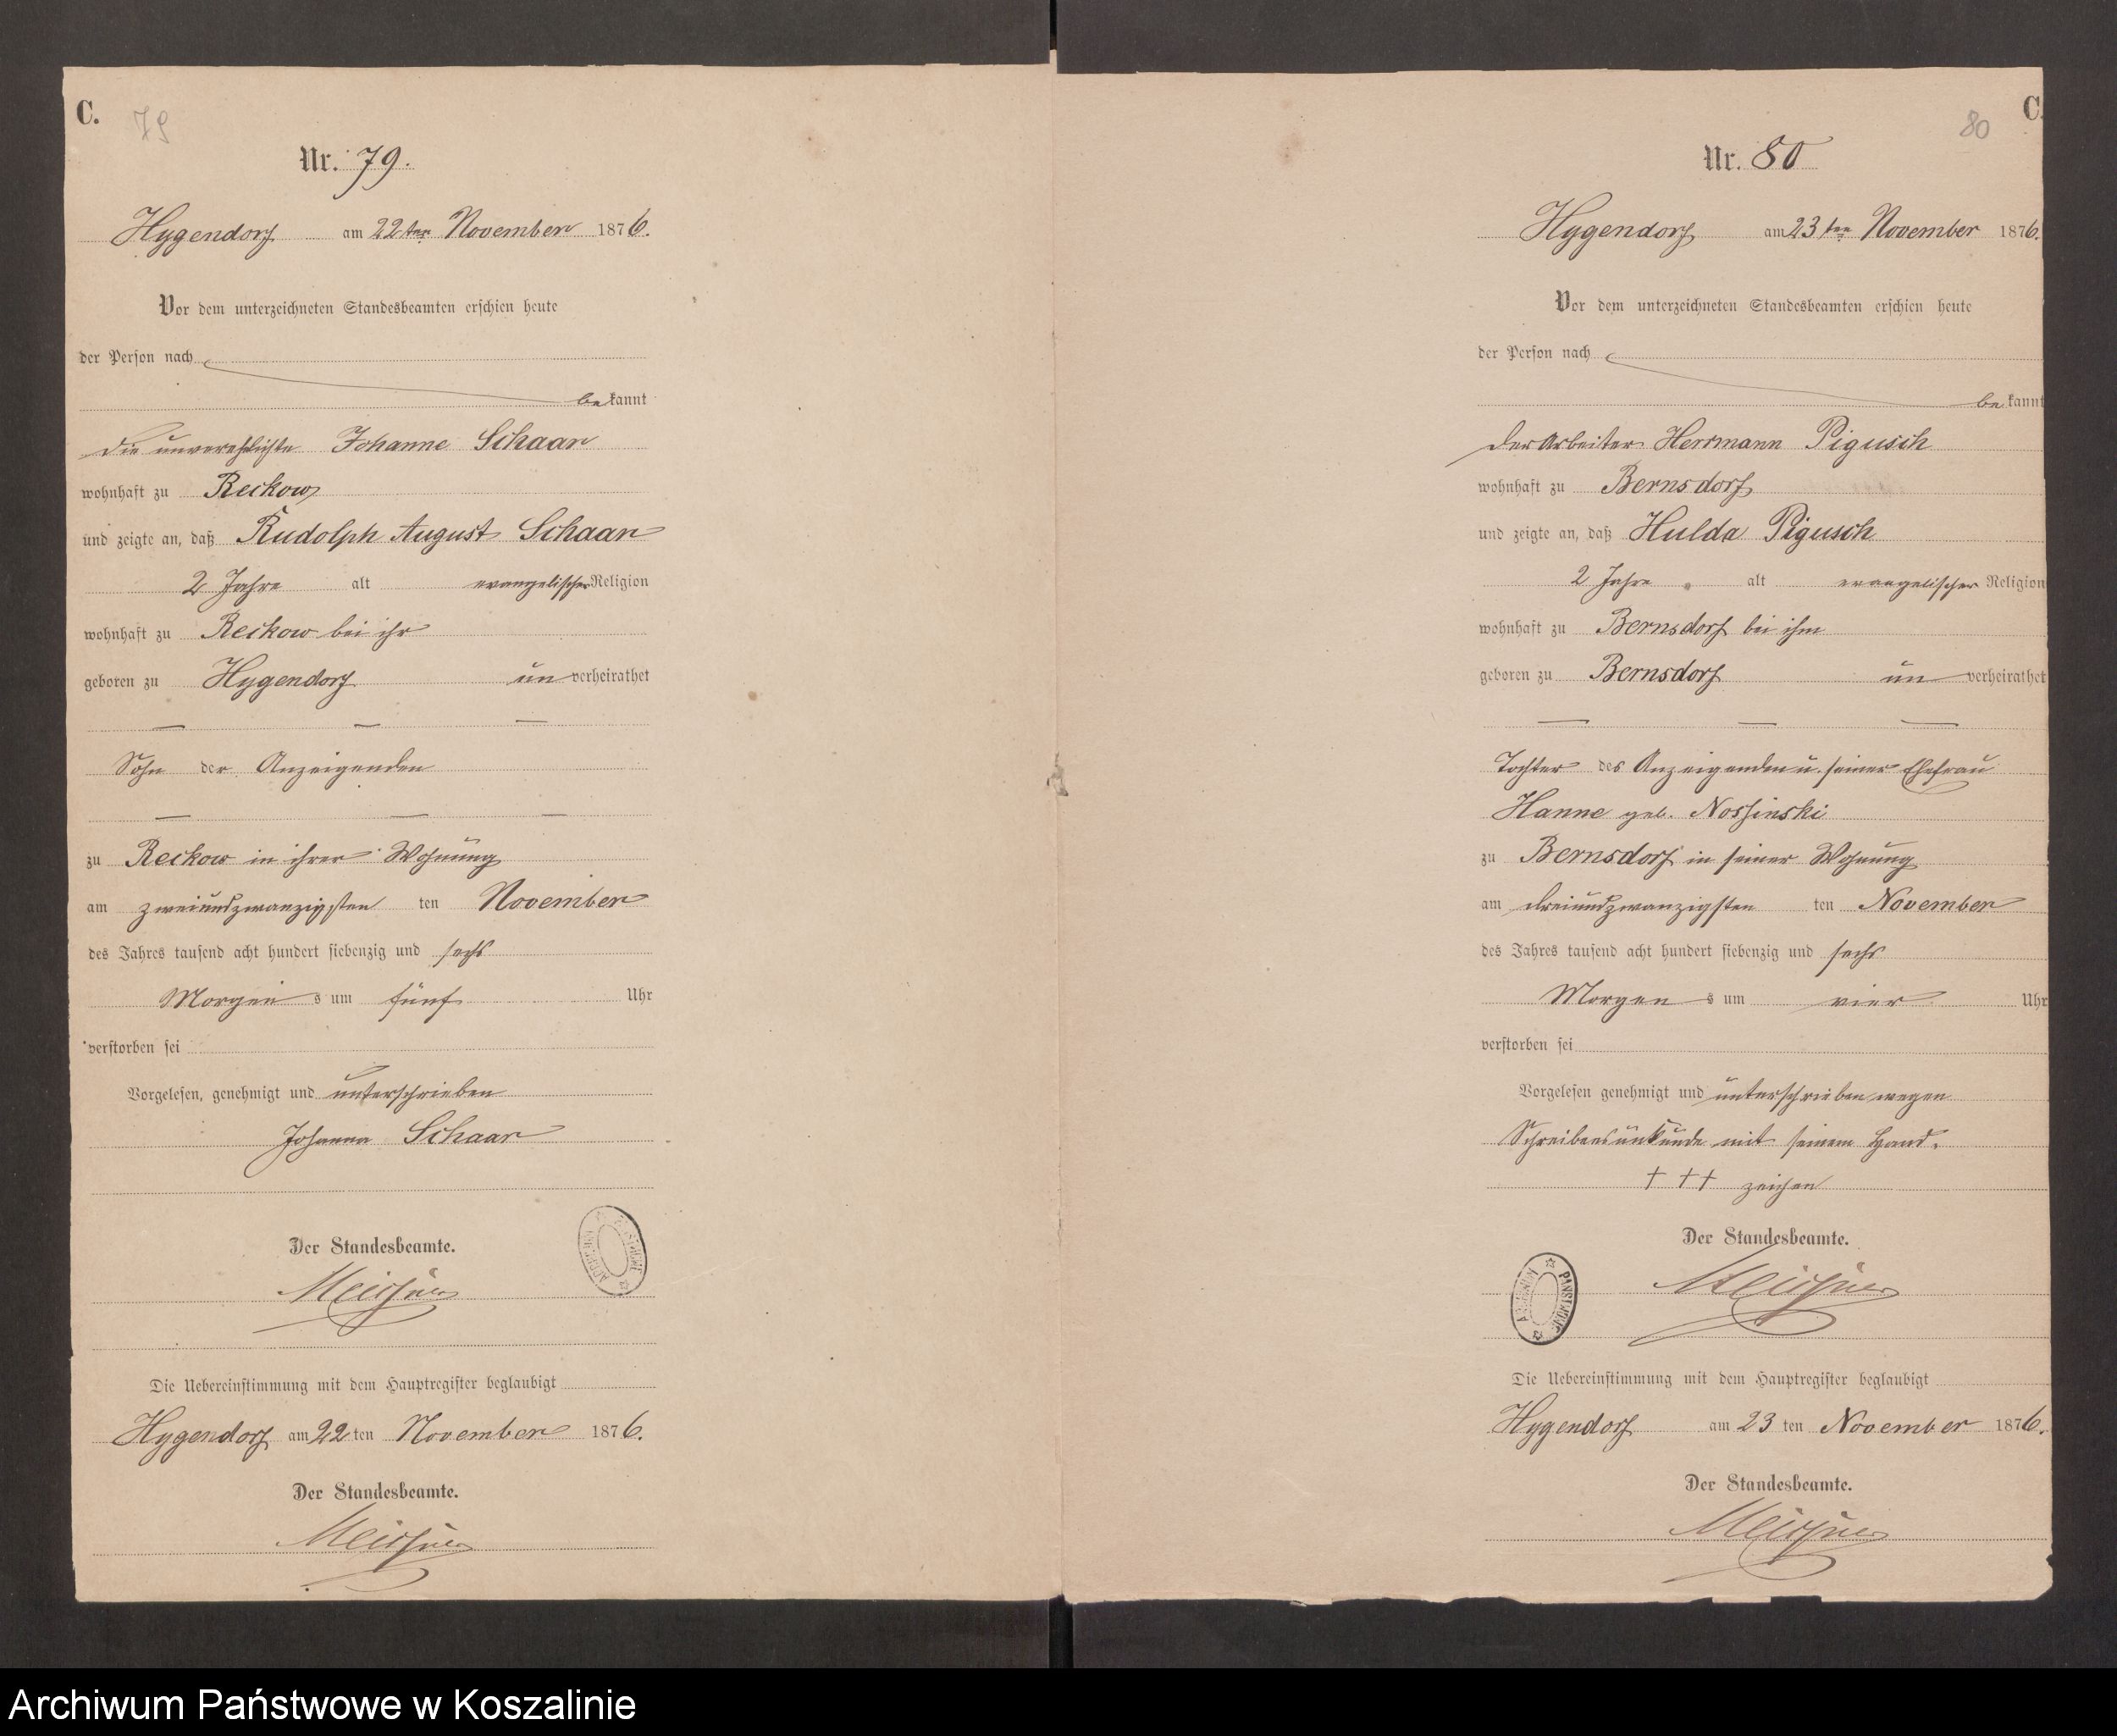 C.
79
Nr. 79.
Hygendorf am 22ten November 1876.
Vor dem unterzeichneten Standesbeamten erschien heute
der Person nach
bekannt
die unverehelichte Johanne Schaar
wohnhaft zu Reckow
und zeigte an, daß Rudolph August Schaar
2 Jahre alt evangelischer Religion
wohnhaft zu Reckow bei ihr
geboren zu Hygendorf unverheirathet
Sohn der Anzeigenden
zu Reckow in ihrer Wohnung
am zweiundzwanzigsten ten November
des Jahres tausend acht hundert siebenzig und sechs
Morgens um fünf Uhr
verstorben sei
Vorgelesen, genehmigt und unterschrieben
Johanna Schaar
Der Standesbeamte.
ARCHIWUM PAŃSTWOWE
Die Uebereinstimmung mit dem Hauptregister beglaubigt
Hygendorf am 22 ten November 1876.
Der Standesbeamte.
C.
80
Nr. 80
Hygendorf am 23ten November 1876.
Vor dem unterzeichneten Standesbeamten erschien heute
der Person nach
bekannt
der Arbeiter Herrmann Pigusch
wohnhaft zu Bernsdorf
und zeigte an, daß Hulda Pigusch
2 Jahre alt evangelischer Religion
wohnhaft zu Bernsdorf bei ihm
geboren zu Bernsdorf unverheirathet
Tochter des Anzeigenden u. seiner Ehefrau
Hanne geb. Nossinski
zu Bernsdorf in seiner Wohnung
am dreiundzwanzigsten ten November
des Jahres tausend acht hundert siebenzig und sechs
Morgens um vier Uhr
verstorben sei
Vorgelesen genehmigt und unterschrieben wegen
Schreibensunkunde mit seinem Hand-
+ + + zeichen
Der Standesbeamte.
ARCHIWUM PAŃSTWOWE
Die Uebereinstimmung mit dem Hauptregister beglaubigt
Hygendorf am 23 ten November 1876.
Der Standesbeamte.
Archiwum Państwowe w Koszalinie